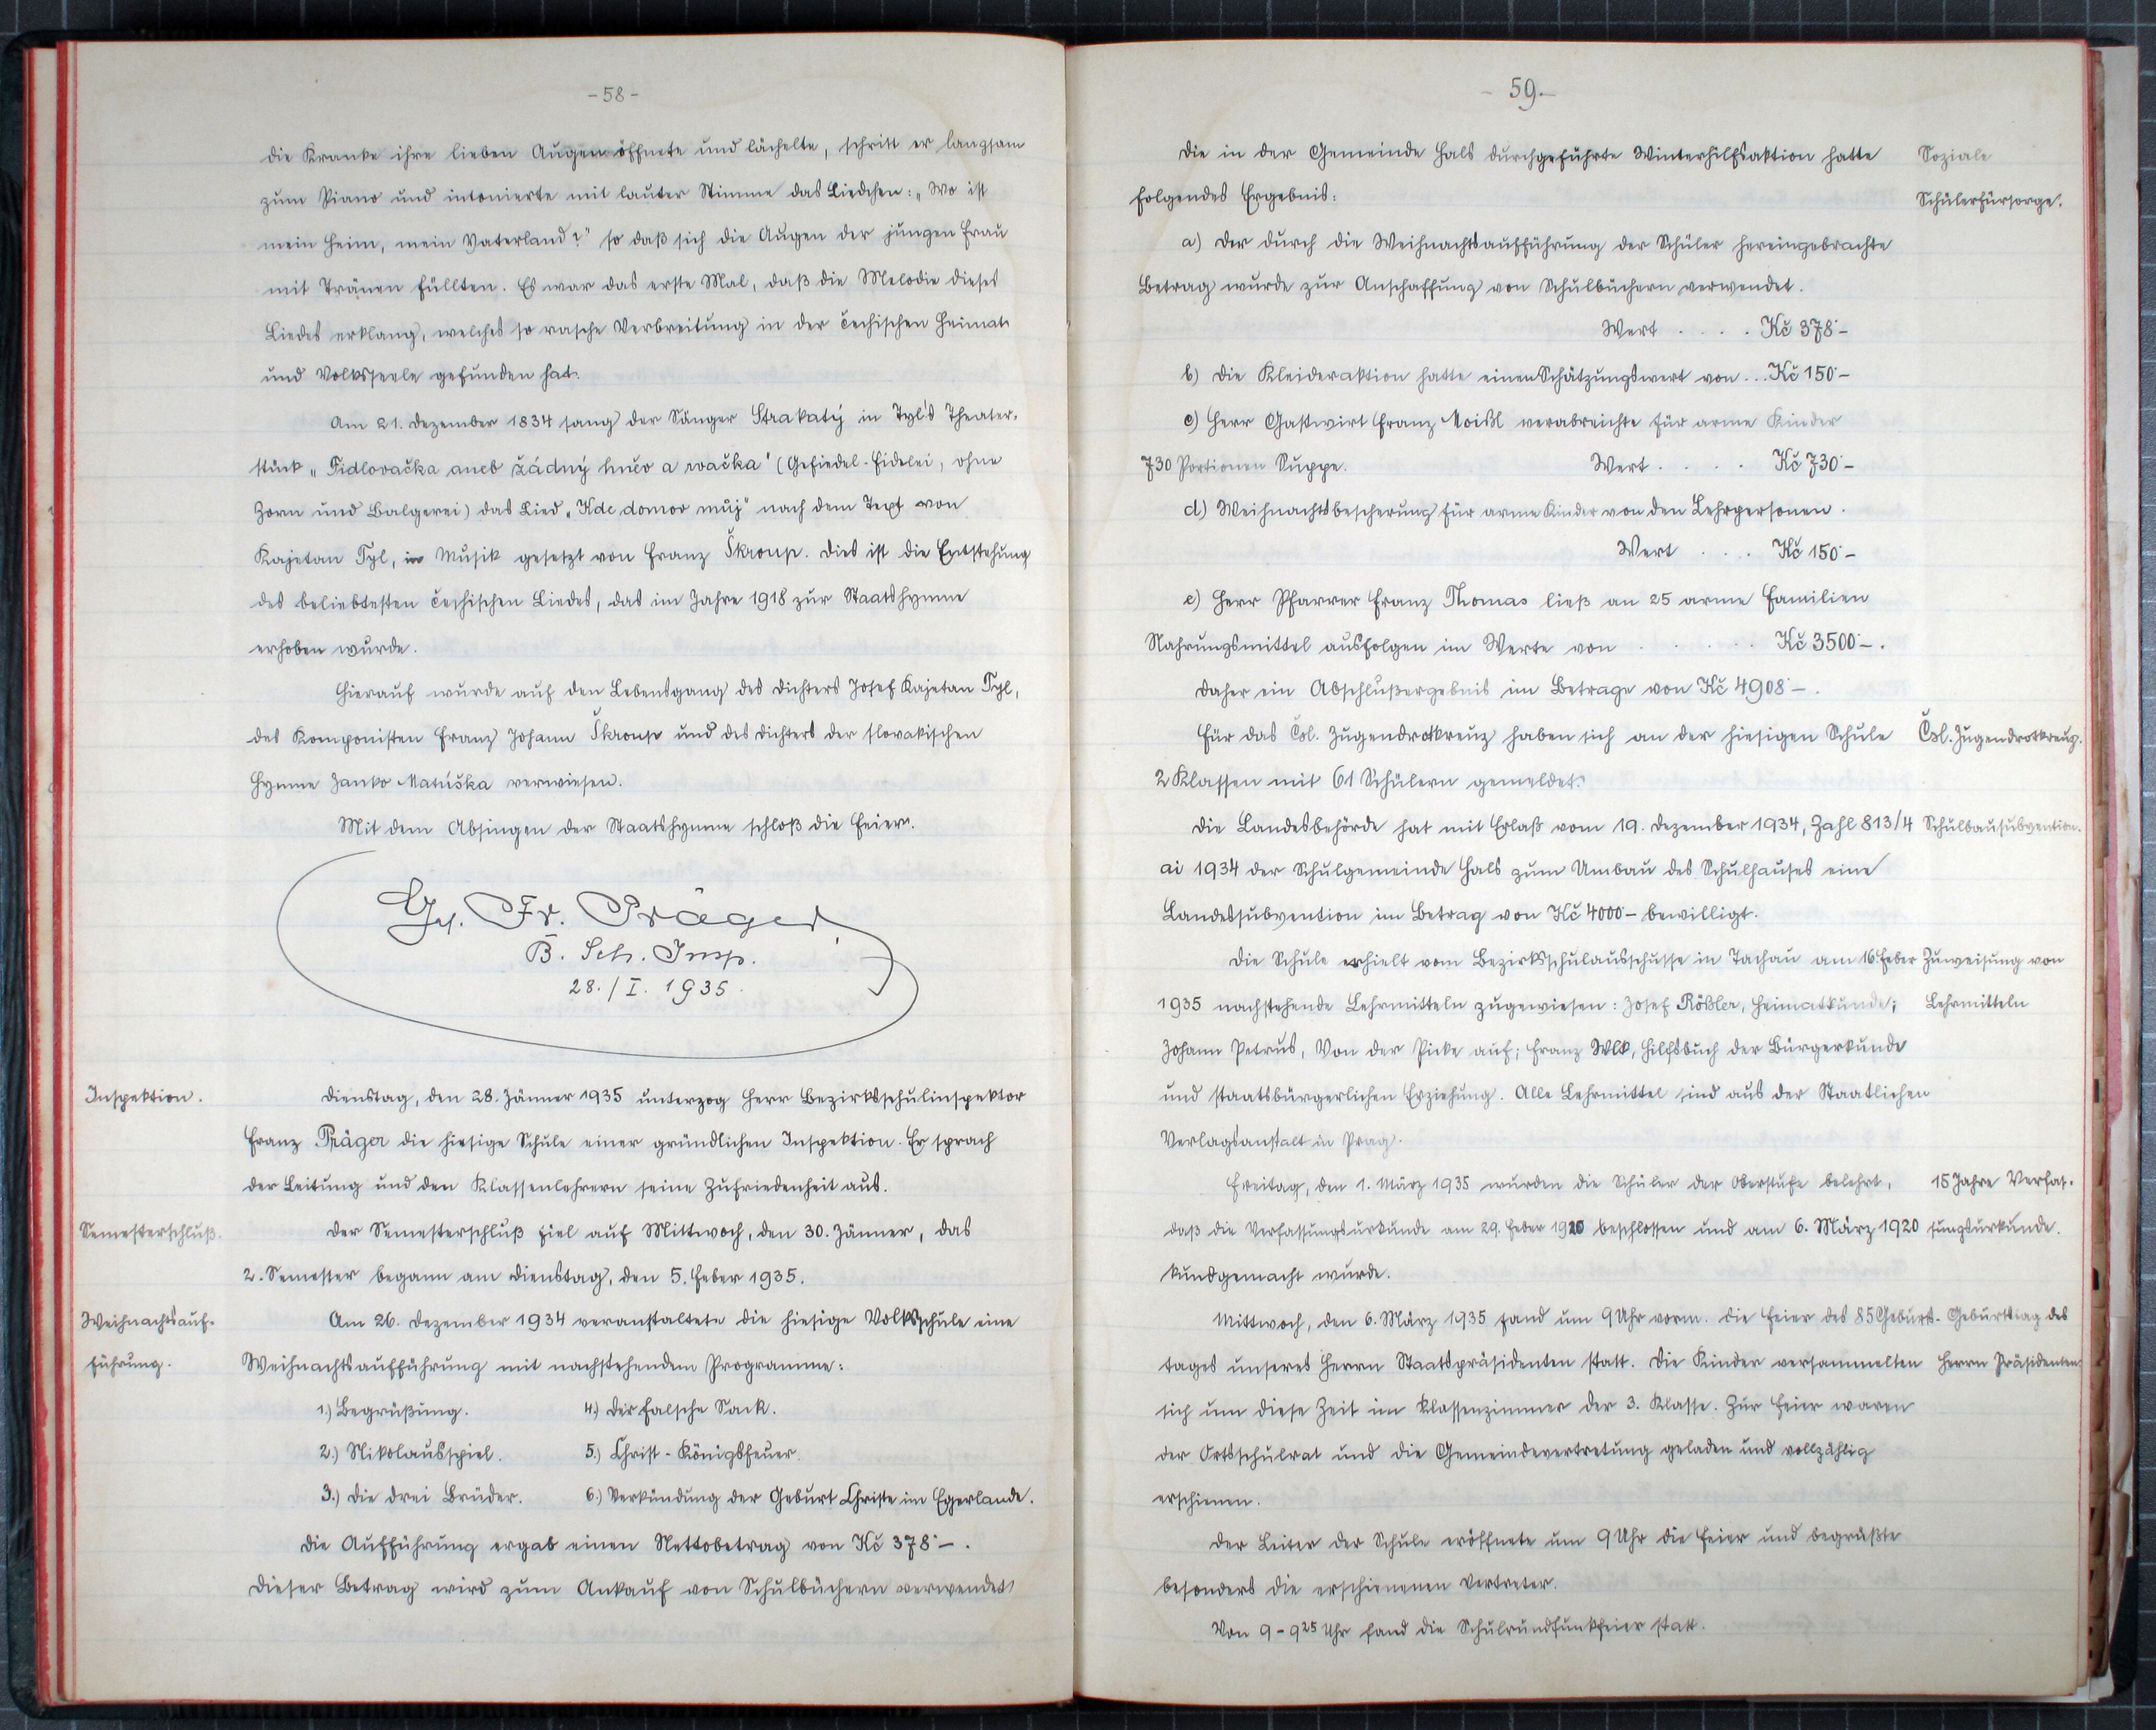 - 58 -
die Kranke ihre lieben Augen öffnete und lächelte, schritt er langsam
zum Piano und intonierte mit lauter Stimme das Liedchen: „Wo ist
mein Heim, mein Vaterland?" so daß sich die Augen der jungen Frau
mit Tränen füllten. Es war das erste Mal, daß die Melodie dieses
Liedes erklang, welches so rasche Verbreitung in der čechischen Heimat
und Volksseele gefunden hat.
Am 21. Dezember 1834 sang der Sänger Strakatý in Tyl's Theater-
stück „Fidlovačka aneb žádný hněv a rvačka" (Gefiedel-Fidelei, ohne
Zorn und Balgerei) das Lied „Kde domov můj" nach dem Text von
Kajetan Tyl, in Musik gesetzt von Franz Škroup. Dies ist die Entstehung
des beliebtesten čechischen Liedes, das im Jahre 1918 zur Staatshymne
erhoben wurde.
Hierauf wurde auf den Lebensgang des Dichters Josef Kajetan Tyl,
des Komponisten Franz Johann Škroup und des Dichters der slovakischen
Hymne Janko Matúška verwiesen.
Mit dem Absingen der Staatshymne schloß die Feier.
Ges. Fr. Präger
B. Sch. Insp.
28./I. 1935.
Inspektion.
Dienstag, den 28. Jänner 1935 unterzog Herr Bezirksschulinspektor
Franz Präger die hiesige Schule einer gründlichen Inspektion. Er sprach
der Leitung und den Klassenlehrern seine Zufriedenheit aus.
Semesterschluß.
Der Semesterschluß fiel auf Mittwoch, den 30. Jänner, das
2. Semester begann am Dienstag, den 5. Feber 1935.
Weihnachtsauf-
führung.
Am 26. Dezember 1934 veranstaltete die hiesige Volksschule eine
Weihnachtsaufführung mit nachstehendem Programme:
1.) Begrüßung. 4.) Der falsche Sack.
2.) Nikolausspiel. 5.) Christ-Königsfeuer.
3.) Die drei Brüder. 6.) Verkündung der Geburt Christe im Egerlande.
Die Aufführung ergab einen Nettobetrag von Kč 378·-.
Dieser Betrag wird zum Ankauf von Schulbüchern verwendet
- 59.-
Die in der Gemeinde Hals durchgeführte Winterhilfsaktion hatte
folgendes Ergebnis:
Soziale
Schülerfürsorge.
a) Der durch die Weihnachtsaufführung der Schüler hereingebrachte
Betrag wurde zur Anschaffung von Schulbüchern verwendet.
Wert . . . . Kč 378·-
b) Die Kleideraktion hatte einen Schätzungswert von ... Kč 150·-
c) Herr Gastwirt Franz Moißl verabreichte für arme Kinder
730 Portionen Suppe. Wert . . . . Kč 730·-
d) Weihnachtsbescherung für arme Kinder von den Lehrpersonen.
Wert . . . Kč 150·-
e) Herr Pfarrer Franz Thomas ließ an 25 arme Familien
Nahrungsmittel ausfolgen im Werte von . . . . . Kč 3500·-.
Daher ein Abschlußergebnis im Betrage von Kč 4.908·-.
Für das Čsl. Jugendrotkreuz haben sich an der hiesigen Schule
2 Klassen mit 61 Schülern gemeldet.
Čsl. Jugendrotkreuz.
Die Landesbehörde hat mit Erlaß vom 19. Dezember 1934, Zahl 813/4
ai 1934 der Schulgemeinde Hals zum Umbau des Schulhauses eine
Landessubvention im Betrag von Kč 4000·- bewilligt.
Schulbausubvention.
Die Schule erhielt vom Bezirksschulausschusse in Tachau am 16. Feber
1935 nachstehende Lehrmitteln zugewiesen: Josef Rößler, Heimatkunde;
Johann Petrus, Von der Picke auf; Franz Wlk, Hilfsbuch der Bürgerkunde
und staatsbürgerlichen Erziehung. Alle Lehrmittel sind aus der Staatlichen
Verlagsanstalt in Prag.
Zuweisung von
Lehrmitteln
Freitag, den 1. März 1935 wurden die Schüler der Oberstufe belehrt,
daß die Verfassungsurkunde am 29. Feber 1920 beschlossen und am 6. März 1920
kundgemacht wurde.
15 Jahre Verfas-
sungsurkunde.
Mittwoch, den 6. März 1935 fand um 9 Uhr vorm. die Feier des 85 Geburts-
tages unseres Herrn Staatspräsidenten statt. Die Kinder versammelten
sich um diese Zeit im Klassenzimmer der 3. Klasse. Zur Feier waren
der Ortsschulrat und die Gemeindevertretung geladen und vollzählig
erschienen.
Geburtstag des
Herrn Präsidenten
Der Leiter der Schule eröffnete um 9 Uhr die Feier und begrüßte
besonders die erschienenen Vertreter.
Von 9-9²⁵ Uhr fand die Schulrundfunkfeier statt.